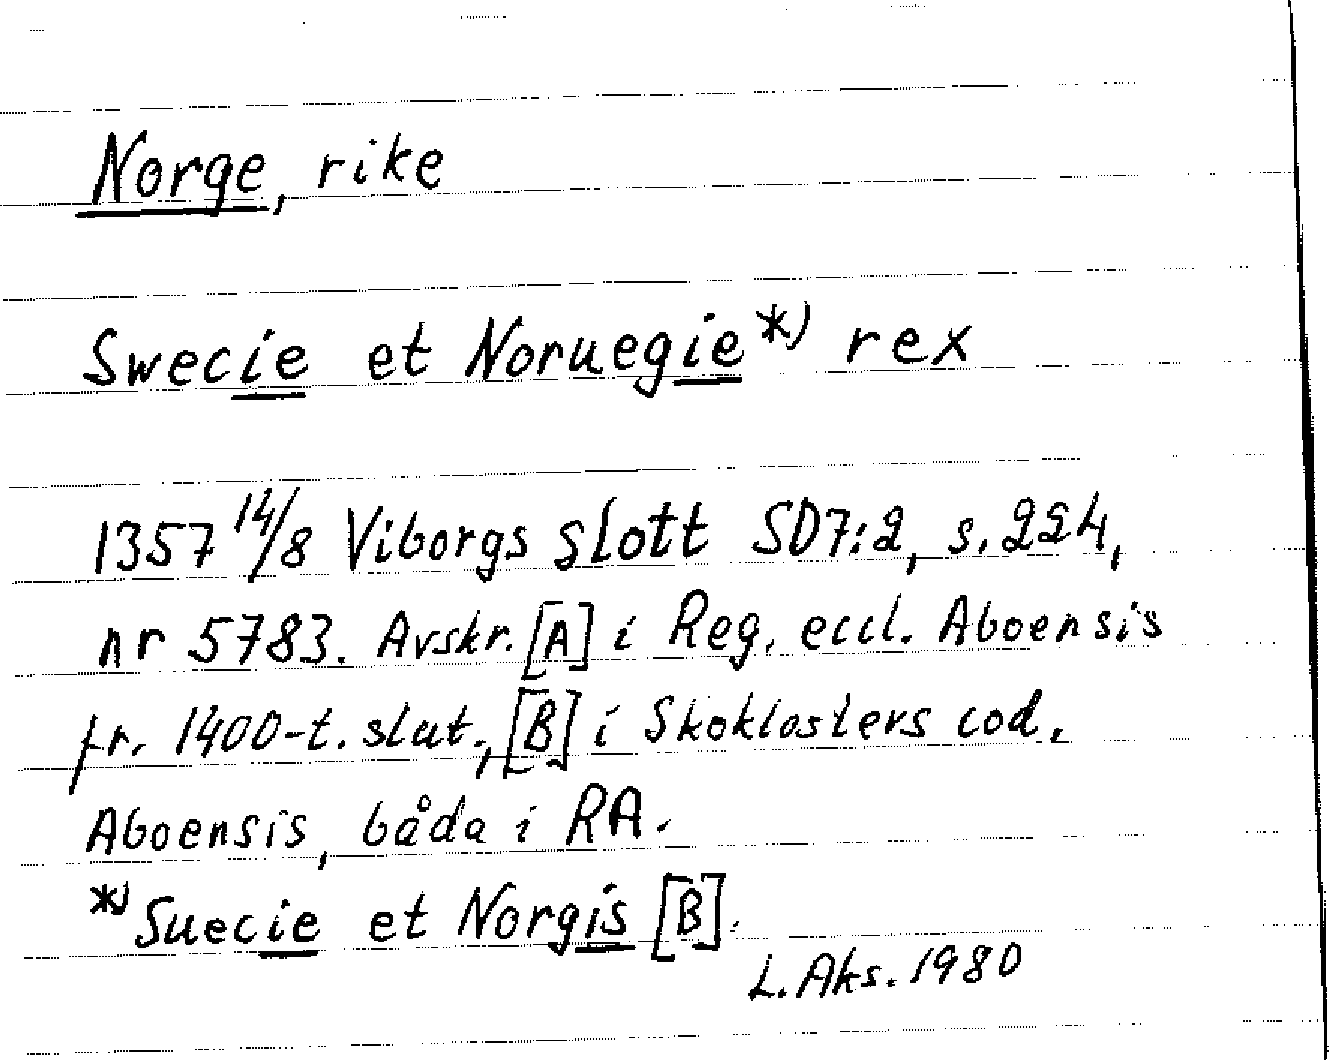 Norge, rike
Swecie et Noruegie*) rex
1357 14/8 Viborgs slott SD7:2, s. 224,
nr 5783. Avskr. [A] i Reg. eccl. Aboensis
fr. 1400-t. slut., [B] i Skoklosters cod.
Aboensis, båda i RA.
*) Suecie et Norgis [B].
L. Aks. 1980